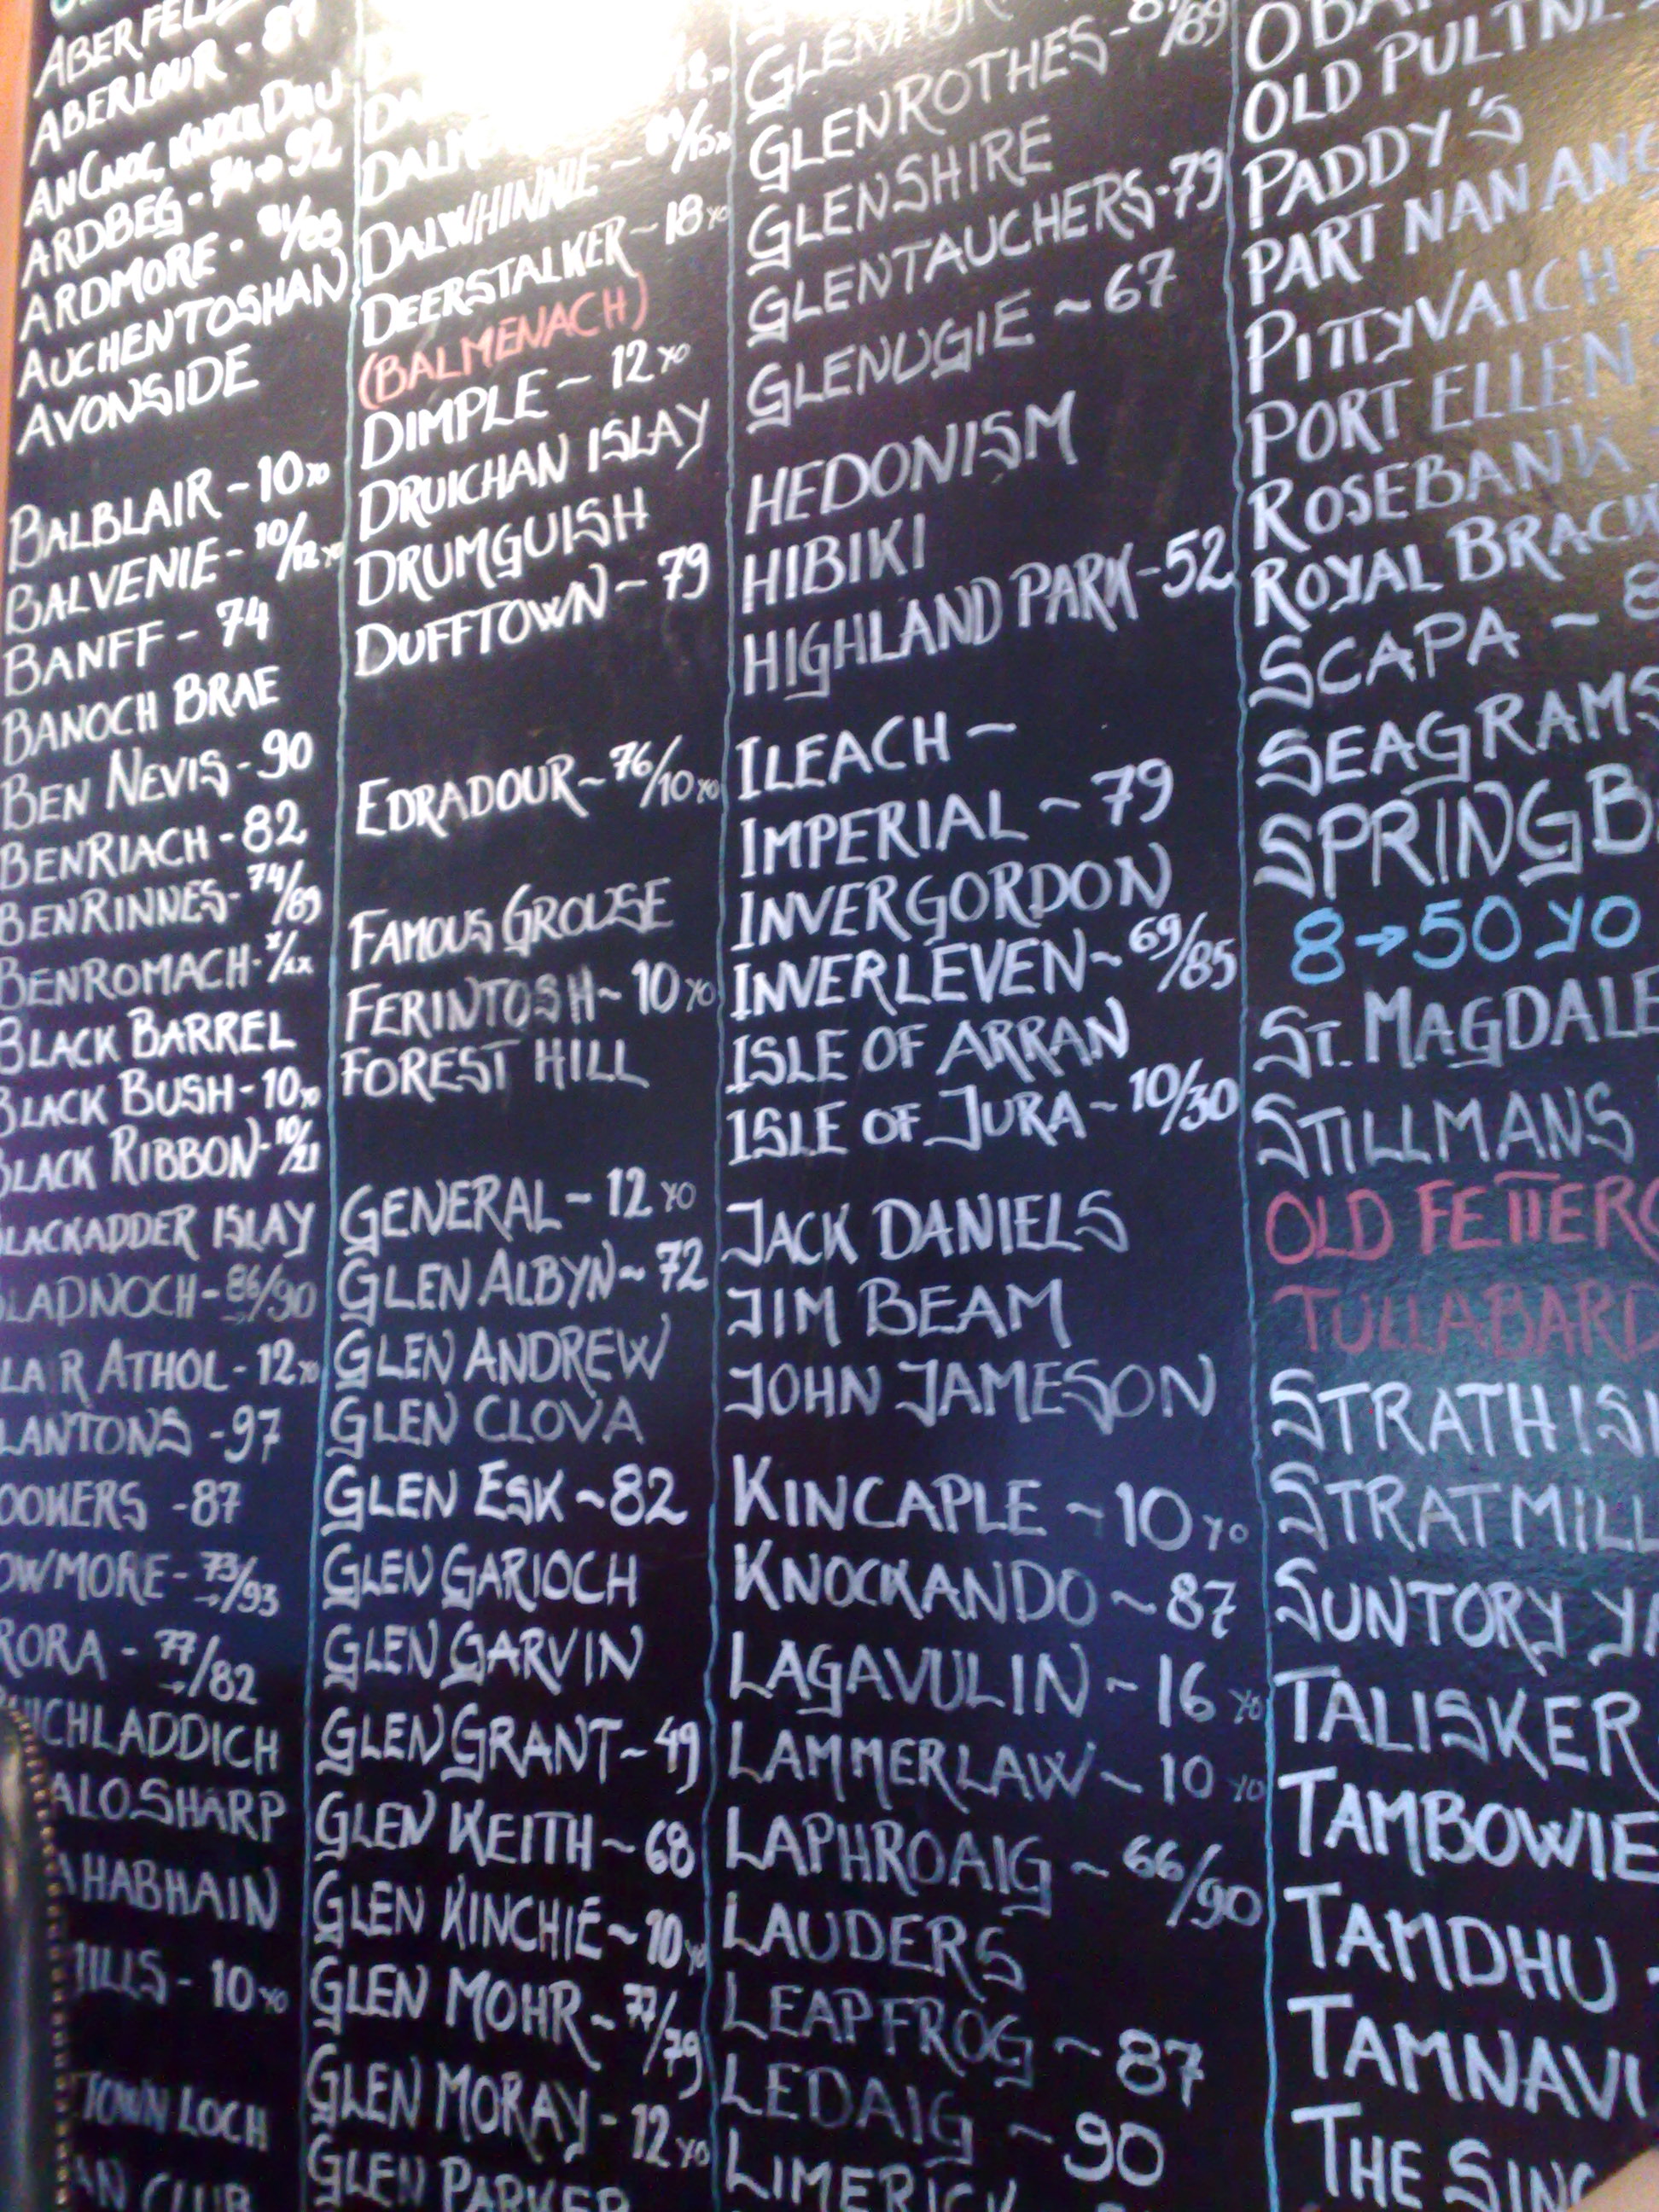 ABERLOUR - 89
ANCNOC, KNOCKDHU
ARDBEG - 74→92
ARDMORE -
AUCHENTOSHAN
AVONSIDE
BALBLAIR ~ 10YO
BALVENIE - 10/12YO
BANFF - 74
BANOCH BRAE
BEN NEVIS - 90
BENRIACH - 82
BENRINNES - 74/89
BENROMACH -
BLACK BARREL
BLACK BUSH - 10YO
BLACK RIBBON - 10/21
BLACKADDER ISLAY
BLADNOCH - 86/90
BLAIR ATHOL - 12YO
LANTONS - 97
OOKERS - 87
OWMORE - 73/93
RORA - 77/82
ICHLADDICH
ALOSHARP
AHABHAIN
HILLS - 10YO
TOWN LOCH
AN CLUB
DALWHINNIE ~ /15YO
DEERSTALKER ~ 18YO
(BALMENACH)
DIMPLE ~ 12YO
DRUICHAN ISLAY
DRUMGUISH
DUFFTOWN ~ 79
EDRADOUR ~ 76/10YO
FAMOUS GROUSE
FERINTOSH ~ 10YO
FOREST HILL
GENERAL ~ 12YO
GLEN ALBYN ~ 72
GLEN ANDREW
GLEN CLOVA
GLEN ESK ~ 82
GLEN GARIOCH
GLEN GARVIN
GLEN GRANT ~ 49
GLEN KEITH ~ 68
GLEN KINCHIE ~ 10YO
GLEN MOHR ~ 77/79
GLEN MORAY - 12YO
GLEN PARKER
GLENROTHES - /89
GLENSHIRE
GLENTAUCHERS - 79
GLENUGIE ~ 67
HEDONISM
HIBIKI
HIGHLAND PARK - 52
ILEACH ~
IMPERIAL ~ 79
INVERGORDON
INVERLEVEN ~ 69/85
ISLE OF ARRAN
ISLE OF JURA ~ 10/30
JACK DANIELS
JIM BEAM
JOHN JAMESON
KINCAPLE ~ 10YO
KNOCKANDO ~ 87
LAGAVULIN ~ 16YO
LAMMERLAW ~ 10YO
LAPHROAIG ~ 66/90
LAUDERS
LEAPFROG ~ 87
LEDAIG ~ 90
LIMERICK
OBA
OLD PULTNE
PADDY'S
PART NAN ANG
PITTYVAICH -
PORT ELLEN -
ROSEBANK -
ROYAL BRACK
SCAPA ~ 8
SEAGRAMS
SPRINGB
8→50 YO
ST. MAGDALE
STILLMANS
OLD FETTERC
TULLABARD
STRATHISL
STRATMILL
SUNTORY YA
TALISKER
TAMBOWIE
TAMDHU -
TAMNAVU
THE SING